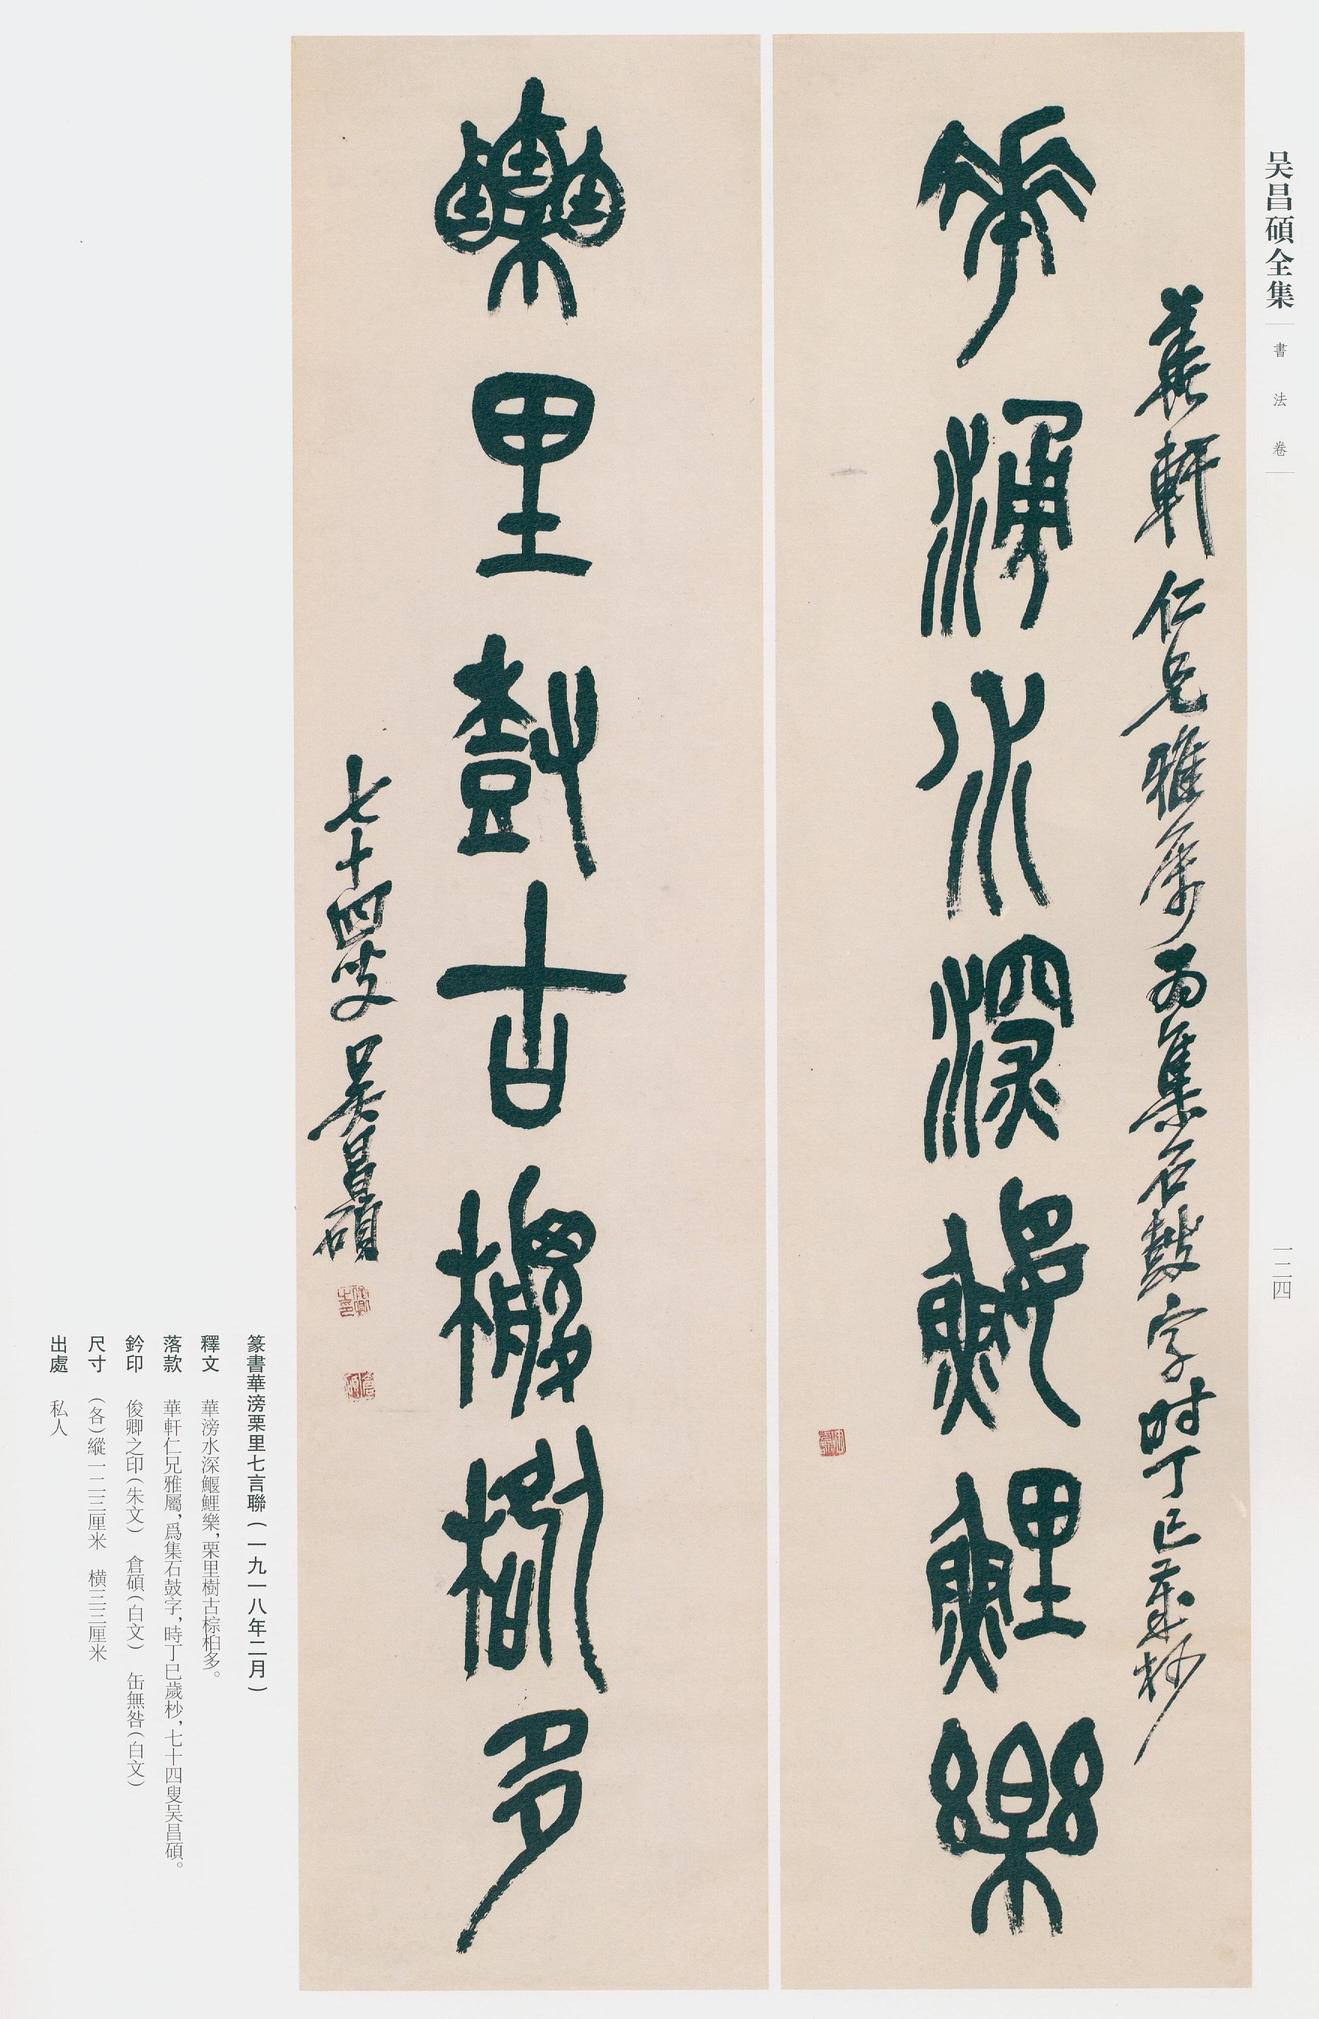 吴昌碩全集
書法卷
一二四
華軒仁兄雅屬為集石鼓字時丁巳歲杪
華滂水深鰋鯉樂
栗里樹古椶柳多
七十四叟吴昌碩
篆書華滂栗里七言聯(一九一八年二月)
釋文 華滂水深鰋鯉樂,栗里樹古棕柏多。
落款 華軒仁兄雅屬,爲集石鼓字,時丁巳歲杪,七十四叟吴昌碩。
鈐印 俊卿之印(朱文) 倉碩(白文) 缶無咎(白文)
尺寸 (各)縱一二三厘米 橫三三厘米
出處 私人